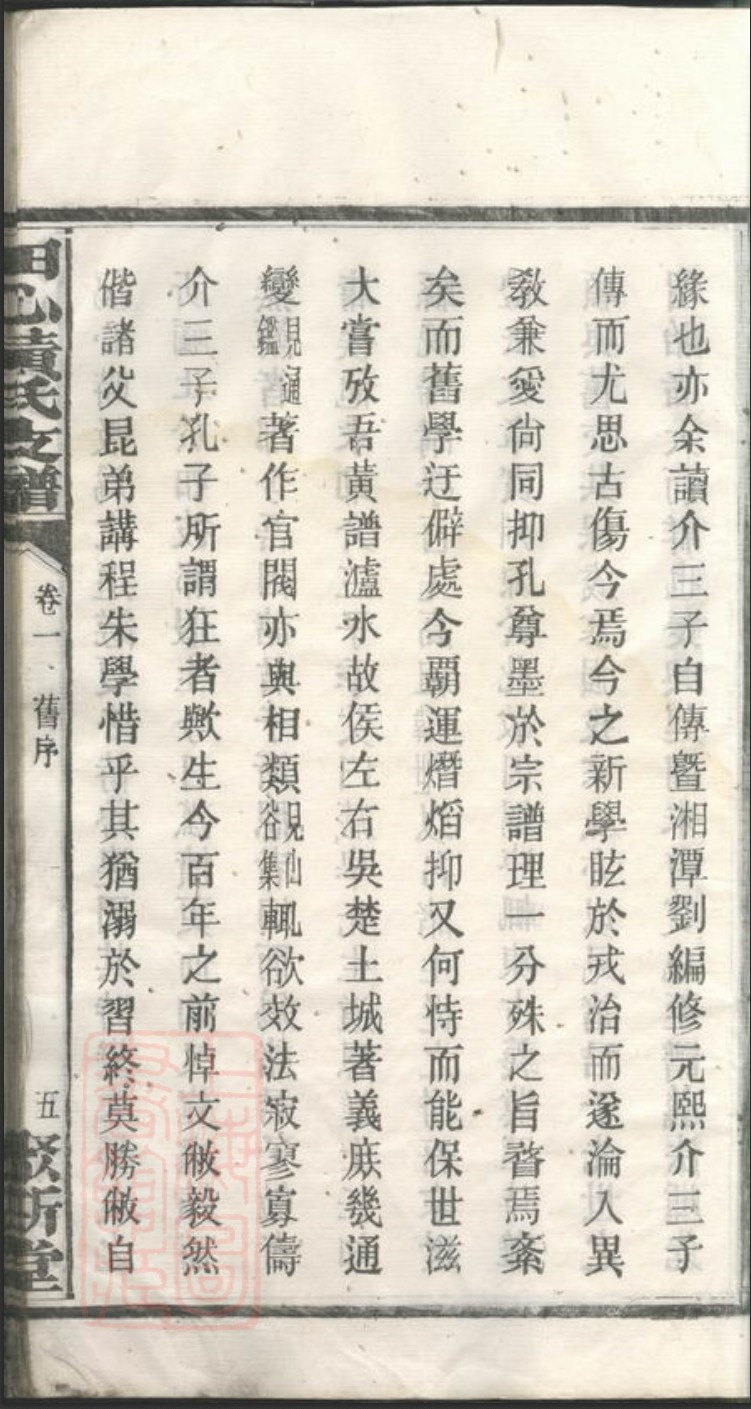 緣也亦余讀介三子自傳暨湘潭劉編修元熙介三子
傳而尤思古傷今焉今之新學眩於戎治而遂淪入異
教兼愛尙同抑孔尊墨於宗譜理一分殊之旨瞀焉紊
矣而舊學迂僻處今覇運熸熖抑又何恃而能保世滋
大嘗攷吾黃譜瀘水故侯左右吳楚土城著義庶幾通
變見通鑑著作官閥亦與相類見仙谷集輒欲效法寂寥寡儔
介三子孔子所謂狂者歟生今百年之前悼文敝毅然
偕諸父昆弟講程朱學惜乎其猶溺於習終莫勝敝自
黃氏支譜
卷一 舊序
五